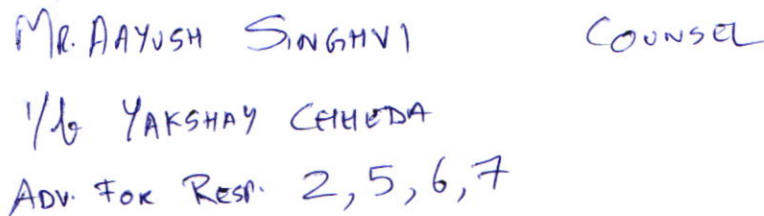 MR. AAYUSH SINGHVI COUNSEL
i/b YAKSHAY CHHEDA
ADV. FOR RESP. 2, 5, 6, 7